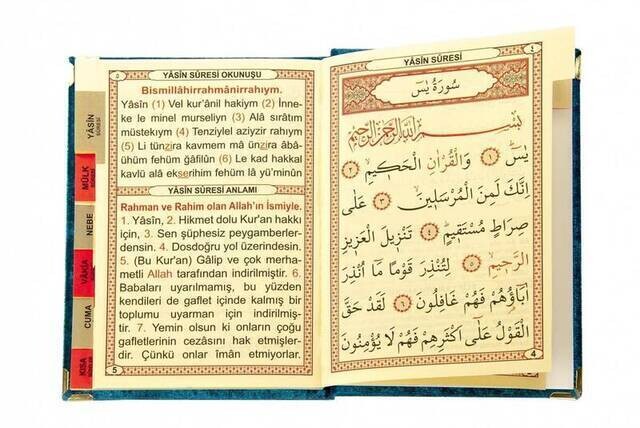 YÂSİN SÛRESİ
٤
سُورَةُ يٰسٓ
بِسْمِ اللهِ الرَّحْمٰنِ الرَّحِيمِ
يٰسٓ ﴿١﴾ وَالْقُرْاٰنِ الْحَكِيمِ ﴿٢﴾
اِنَّكَ لَمِنَ الْمُرْسَلِينَ ﴿٣﴾ عَلٰى
صِرَاطٍ مُسْتَقِيمٍ ﴿٤﴾ تَنْزِيلَ الْعَزِيزِ
الرَّحِيمِ ﴿٥﴾ لِتُنْذِرَ قَوْمًا مَا اُنْذِرَ
اٰبَاؤُهُمْ فَهُمْ غَافِلُونَ ﴿٦﴾ لَقَدْ حَقَّ
الْقَوْلُ عَلٰى اَكْثَرِهِمْ فَهُمْ لَا يُؤْمِنُونَ
4
٥
YÂSİN SÛRESİ OKUNUŞU
Bismillâhirrahmânirrahıym.
Yâsîn (1) Vel kur'ânil hakiym (2) İnne-
ke le minel murseliyn (3) Alâ sırâtım
müstekıym (4) Tenziylel aziyzir rahıym
(5) Li tünzira kavmem mâ ünzira âbâ-
ühüm fehüm ğâfilûn (6) Le kad hakkal
kavlü alâ ekserihim fehüm lâ yü'minûn
YÂSİN SÛRESİ ANLAMI
Rahman ve Rahim olan Allah'ın İsmiyle.
1. Yâsîn, 2. Hikmet dolu Kur'an hakkı
için, 3. Sen şüphesiz peygamberler-
densin. 4. Dosdoğru yol üzerindesin.
5. (Bu Kur'an) Gâlip ve çok merha-
metli Allah tarafından indirilmiştir. 6.
Babaları uyarılmamış, bu yüzden
kendileri de gaflet içinde kalmış bir
toplumu uyarman için indirilmiş-
tir. 7. Yemin olsun ki onların çoğu
gafletlerinin cezasını hak etmişler-
dir. Çünkü onlar îmân etmiyorlar.
5
YÂSİN
SÛRESİ
MÜLK
SÛRESİ
NEBE
VÂKIA
CUMA
KISA